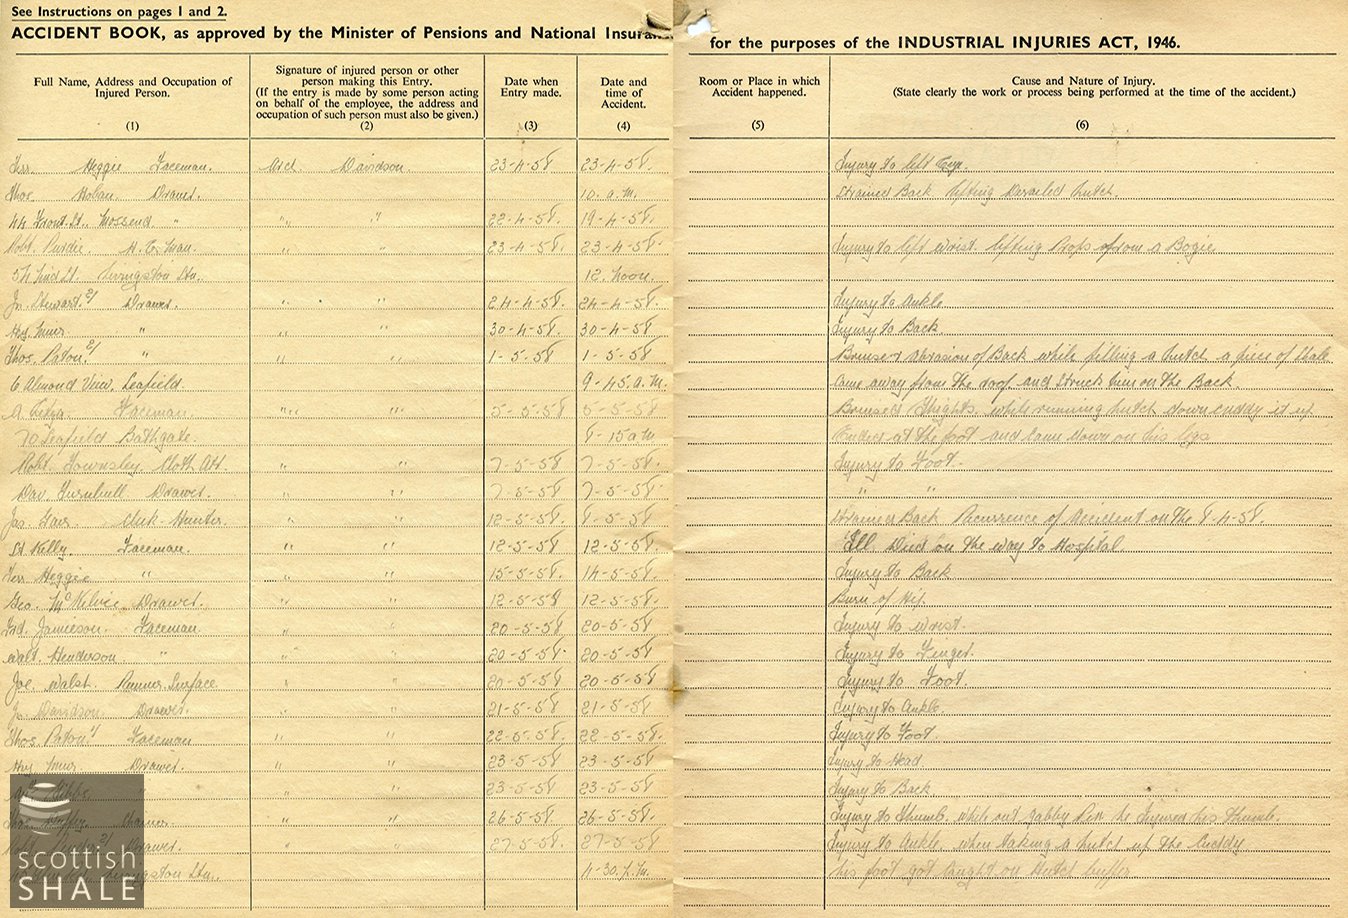 See Instructions on pages 1 and 2.
ACCIDENT BOOK, as approved by the Minister of Pensions and National Insuran
for the purposes of the INDUSTRIAL INJURIES ACT, 1946.
Full Name, Address and Occupation of Injured Person. (1)
Signature of injured person or other person making this Entry. (If the entry is made by some person acting on behalf of the employee, the address and occupation of such person must also be given.) (2)
Date when Entry made. (3)
Date and time of Accident. (4)
Room or Place in which Accident happened. (5)
Cause and Nature of Injury. (State clearly the work or process being performed at the time of the accident.) (6)
Heggie Faceman. Arch. Davidson. 23-4-58 23-4-58 Injury to left Eye.
Thos. Hoban Drawer. 10. a.m. Strained Back lifting Derailed hutch.
44 Front St. Mossend " " " 22-4-58. 19-4-58.
Robt. Purdie. " " 23-4-58. 23-4-58. Injury to left wrist lifting Props from a Bogie
Livingston Stn. 12. noon.
Jn. Stewart 2/ Drawer. " " 24-4-58. 24-4-58. Injury to Ankle
Muir " " " 30-4-58. 30-4-58. Injury to Back.
Thos. Paton 2/ " " " 1-5-58 1-5-58. Bruise & abrasion of Back while filling a hutch a piece of shale
6 Almond View, Seafield. 9-45. a.m. came away from the roof and struck him on the Back.
Faceman. " " 5-5-58 5-5-58 Bruised Thights while running hutch down cuddy it up
70 Seafield Bathgate. 8-15 a.m Ended at the foot and came down on his legs
Robt. Townsley Cloth Att. " " 7-5-58. 7-5-58. Injury to Foot.
Dav. Turnbull Drawer. " " 7-5-58. 7-5-58. " "
Jas. Clek-Hunter. " " 12-5-58. 8-5-58. Strained Back Recurrence of accident on the 8-4-58.
Kelly. Faceman. " " 12-5-58. 12-5-58. Ill. Died on the way to Hospital.
Heggie " " " 15-5-58. 14-5-58. Injury to Back
Geo. McKelvie Drawer. " " 12-5-58 12-5-58. Burn of Hip.
Jamieson. Faceman. " " 20-5-58 20-5-58. Injury to wrist.
Walt. Henderson " " " 20-5-58. 20-5-58. Injury to Finger.
Joe. Walsh. Runner. Surface " " 20-5-58 20-5-58 Injury to Foot.
Jn Davidson Drawer. " " 21-5-58 21-5-58. Injury to Ankle.
Thos. Paton 1/ Faceman " " 22-5-58. 22-5-58. Injury to Foot.
Muir. Drawer. " " 23-5-58 23-5-58. Injury to Head
" " 23-5-58 23-5-58. Injury to Back
" " 26-5-58 26-5-58. Injury to Thumb, while out gabby Pin he Injured his Thumb.
2/ Drawer. " " 27-5-58. 27-5-58 Injury to Ankle, when taking a hutch up the Cuddy
Livingston Stn. 11-30. P.M. his foot got caught on Hutch buffer
scottish
SHALE